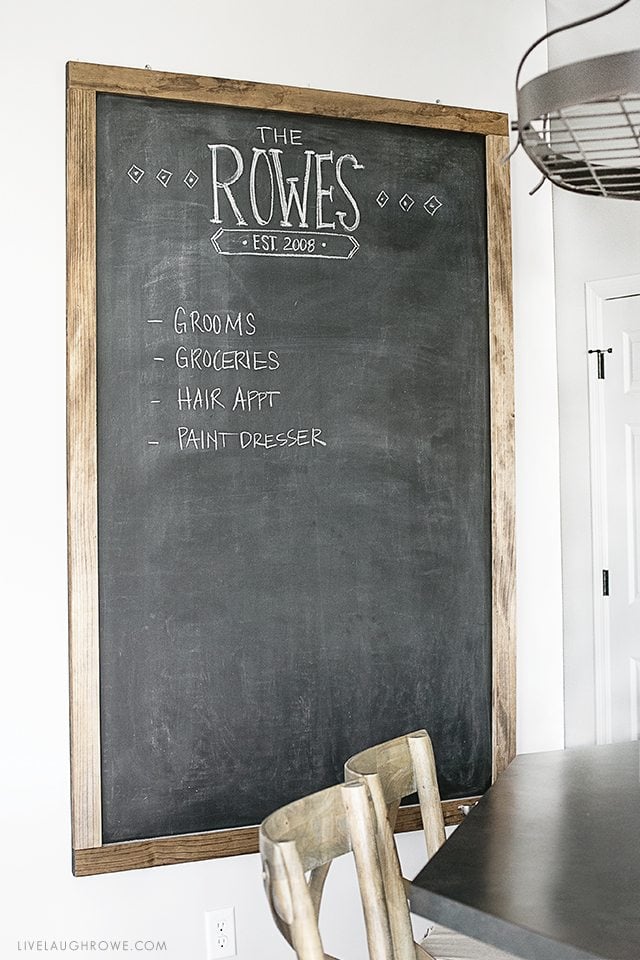 THE
ROWES
• EST. 2008 •
– GROOMS
– GROCERIES
– HAIR APPT
– PAINT DRESSER
LIVELAUGHROWE.COM